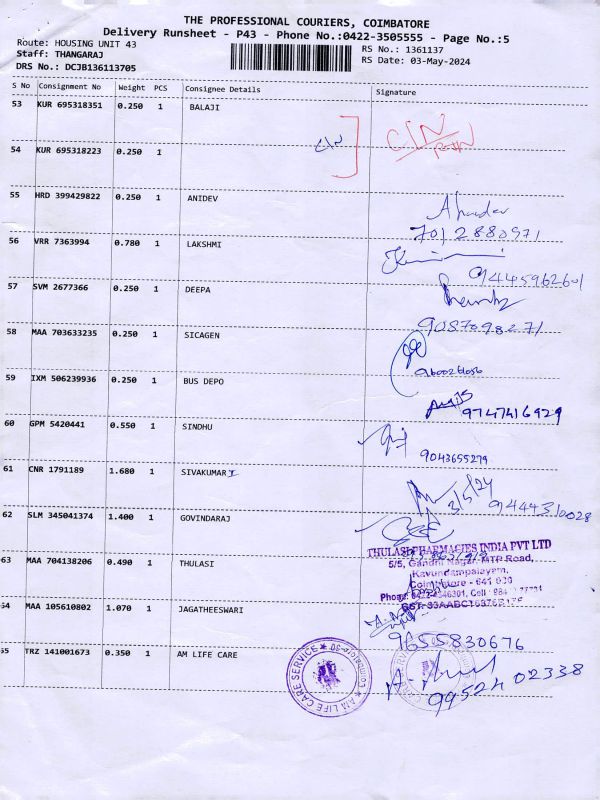 THE PROFESSIONAL COURIERS, COIMBATORE
Delivery Runsheet - P43 - Phone No.:0422-3505555 - Page No.:5
Route: HOUSING UNIT 43
Staff: THANGARAJ
DRS No.: DCJB136113705
RS No.: 1361137
RS Date: 03-May-2024
S No Consignment No Weight PCS Consignee Details Signature
53 KUR 695318351 0.250 1 BALAJI
54 KUR 695318223 0.250 1
55 HRD 399429822 0.250 1 ANIDEV
7012880971
56 VRR 7363994 0.780 1 LAKSHMI
9445962601
57 SVM 2677366 0.250 1 DEEPA
9087098271
58 MAA 703633235 0.250 1 SICAGEN
59 IXM 506239936 0.250 1 BUS DEPO
9747416929
60 GPM 5420441 0.550 1 SINDHU
9043655279
61 CNR 1791189 1.680 1 SIVAKUMAR
3/5/24
9444310028
62 SLM 345041374 1.400 1 GOVINDARAJ
THULASI PHARMACIES INDIA PVT LTD
5/5, Gandhi Nagar, MTP Road,
Kavundampalayam,
Coimbatore - 641 030
63 MAA 704138206 0.490 1 THULASI
64 MAA 105610802 1.070 1 JAGATHEESWARI
9655830676
65 TRZ 141001673 0.350 1 AM LIFE CARE
AM LIFE CARE SERVICE
Coimbatore-30
9952402338